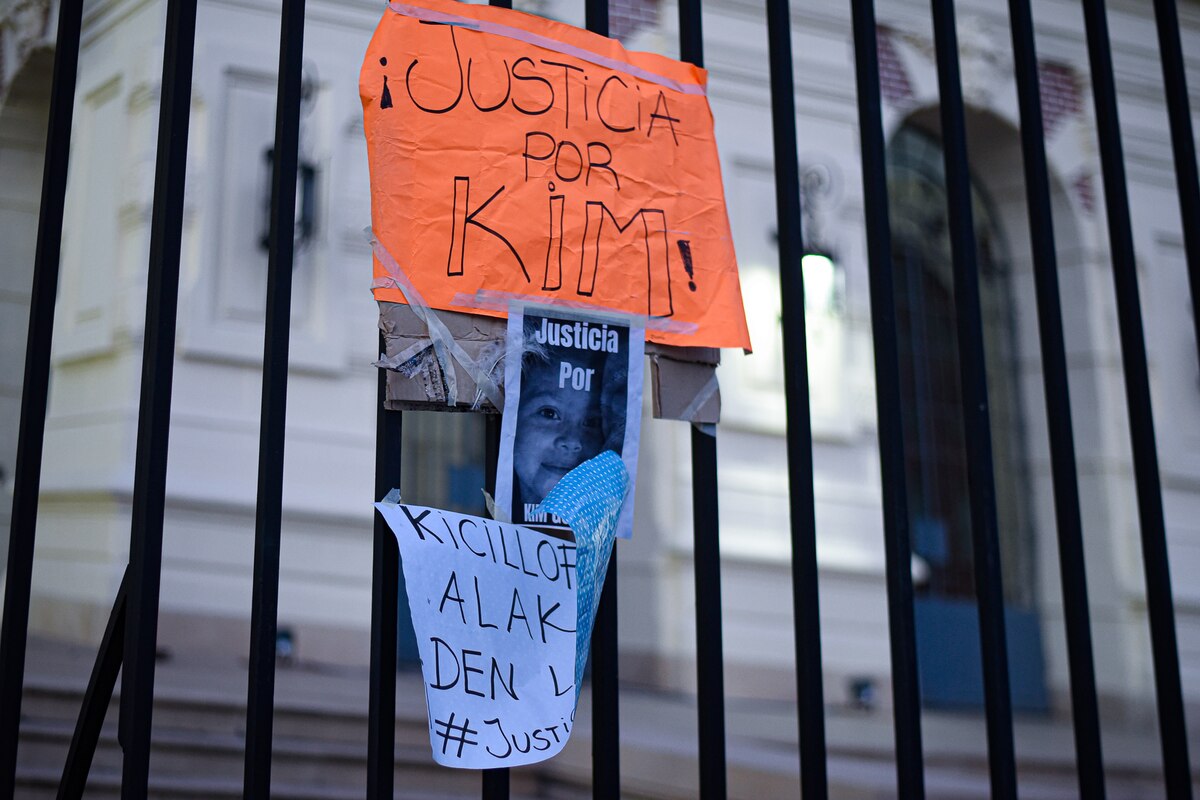 ¡JUSTICIA
POR
KIM!
Justicia
Por
KIM
KICILLOF
ALAK
DEN
#JUSTIC